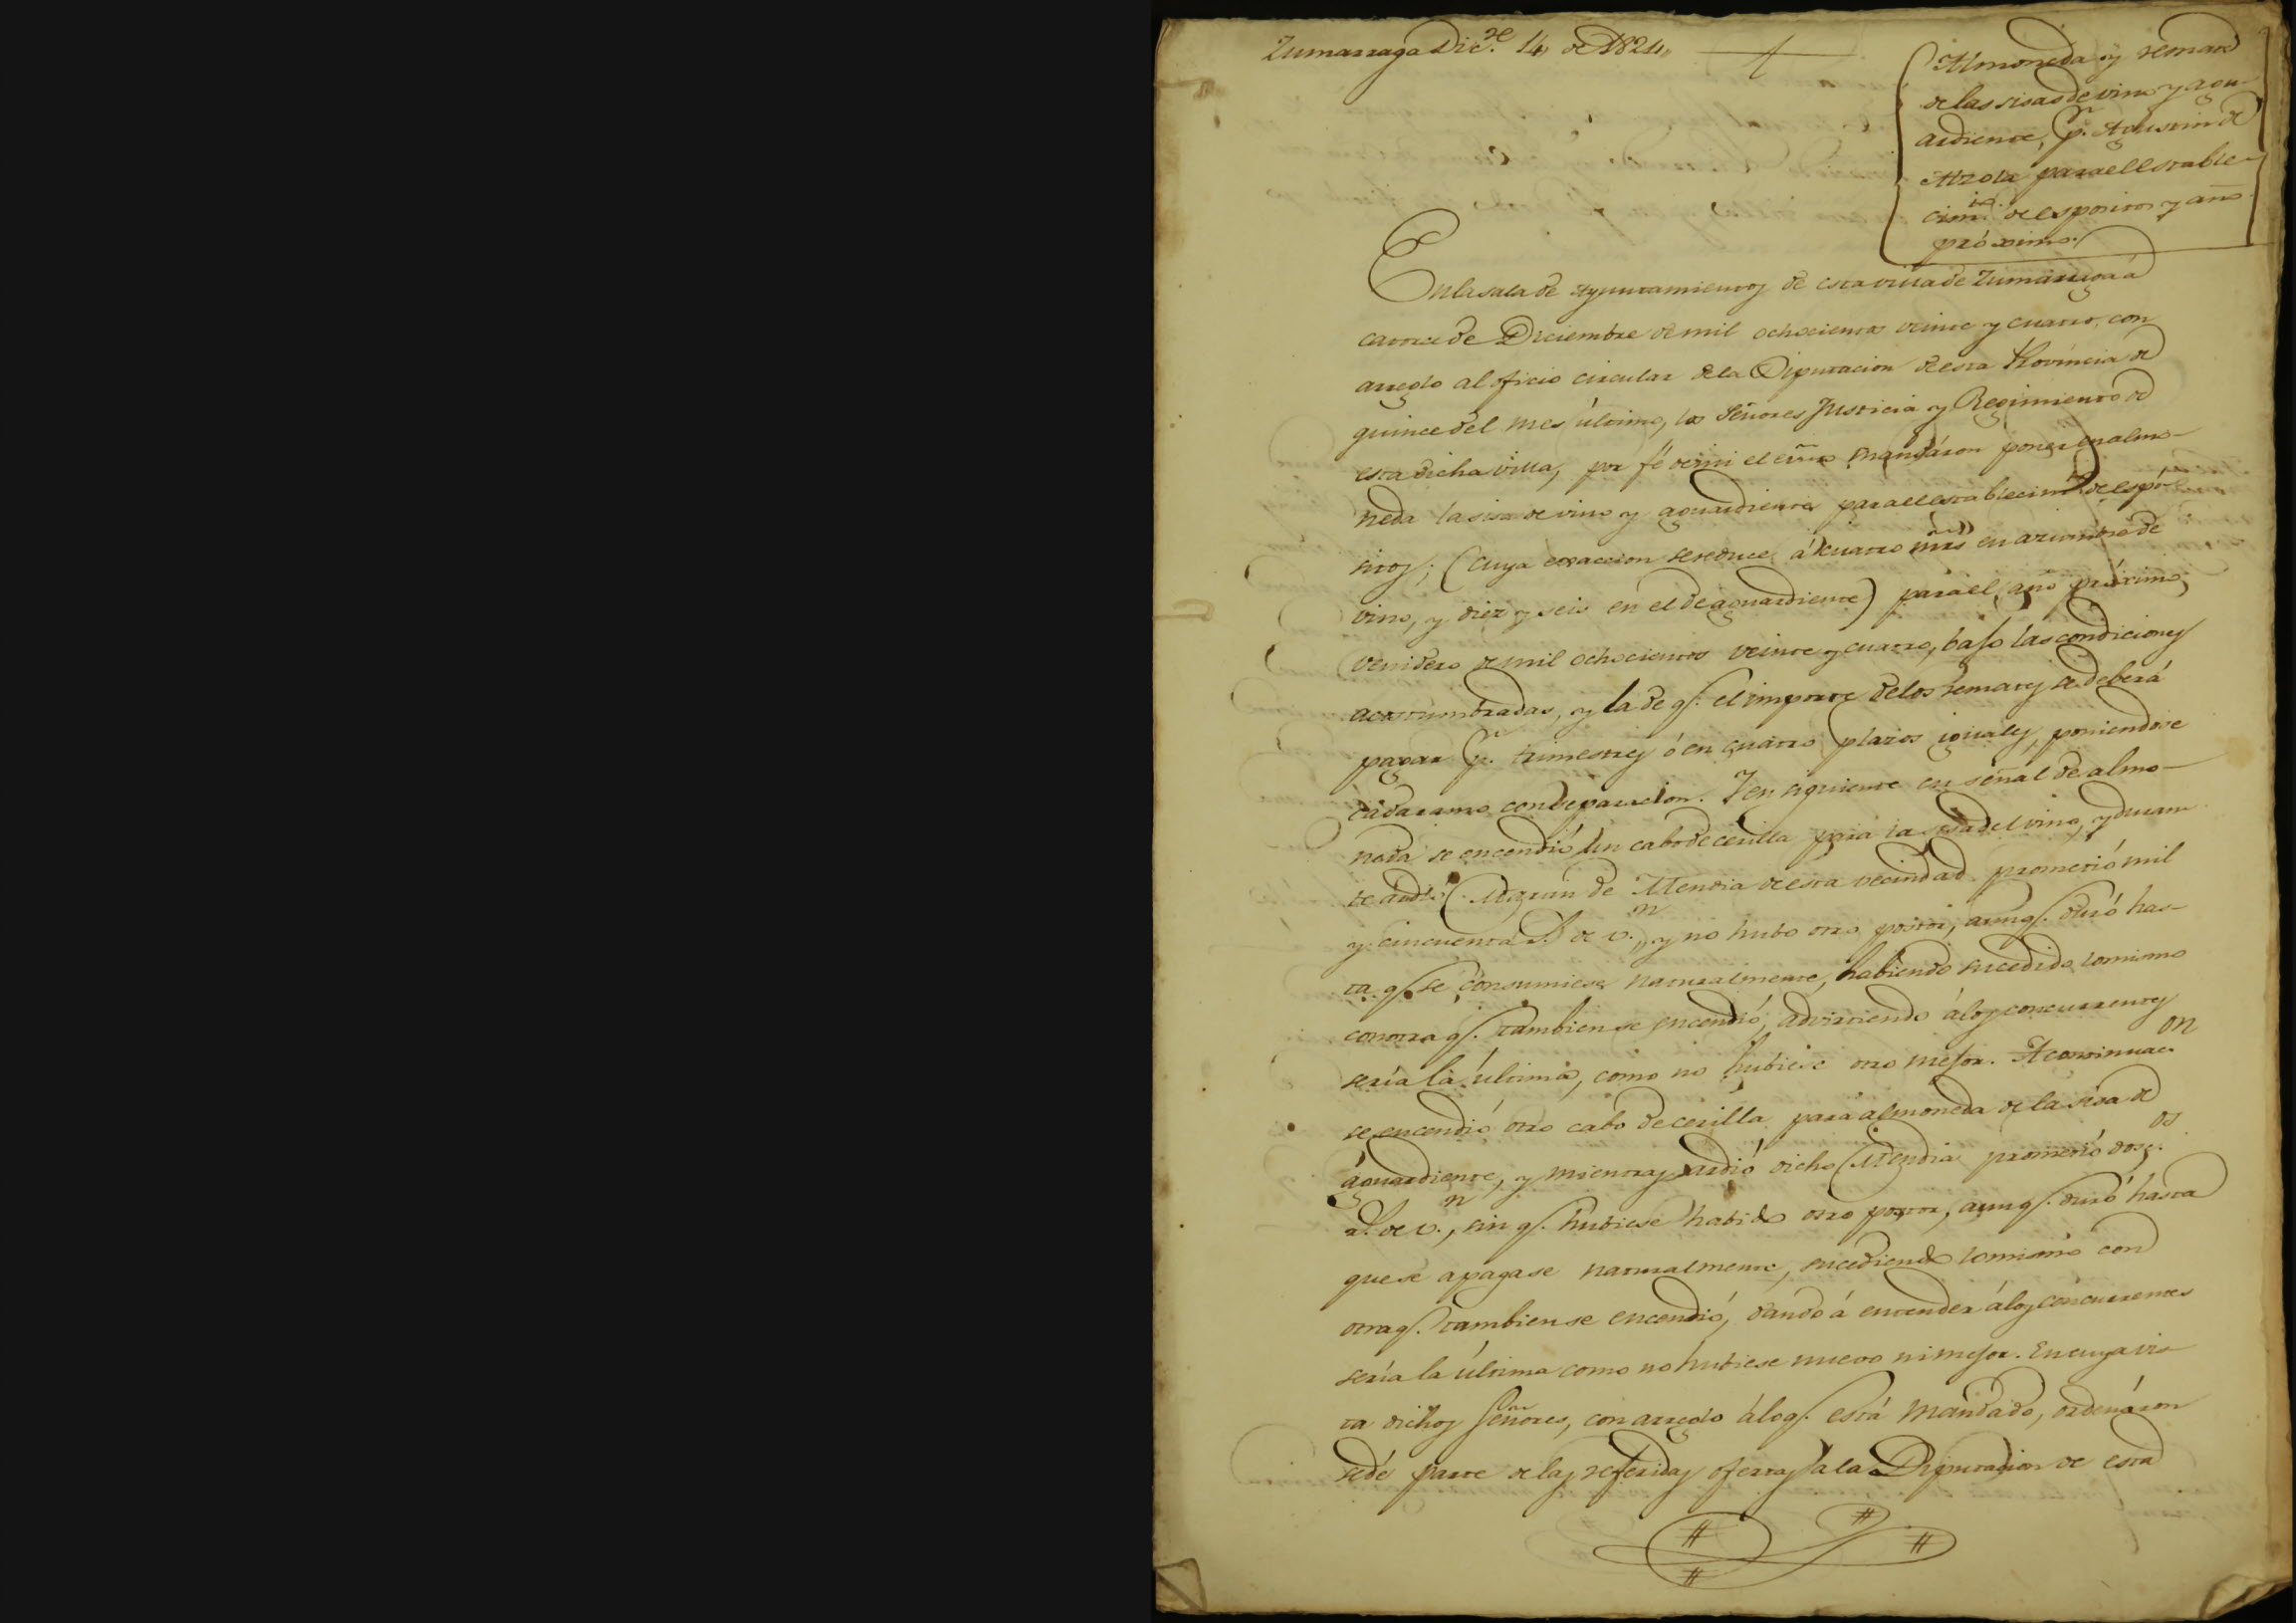 Zumarraga Dic.re 14, de 1824,,
Almoneda y remate
de las sisas de vino y agu-
ardiente, p.r Agustin de
Alzola para el estable-
cim.to de espositos y año
próximo.
En la sala de Ayuntamientos de esta villa de Zumarraga á
catorce de Diciembre de mil ochocientos veinte y cuatro, con
arreglo al oficio circular de la Diputacion de esta Provincia de
quince del mes último, los Señores Justicia y Regimiento de
esta dicha villa, por fé de mi el es̃no mandáron poner en almo-
neda la sisa de vino y aguardiente para el establecim.to de espó-
sitos; (cuya exaccion se reduce á cuatro mr̃s en azumbre de
vino, y diez y seis en el de aguardiente) para el año próximo,
venidero de mil ochocientos veinte y cuatro, bajo las condiciones
acostumbradas, y la de q.e el importe de los remates se deberá
pagar p.r trimestres ó en cuatro plazos iguales, poniendose
cada ramo con separacion. Y en siguiente en señal de almo-
neda se encendió un cabo de cerilla para la sisa del vino, y duran
te ardió Martin de Mendia de esta vecindad prometió mil
y cincuenta r.s de v.n,, y no hubo otro postor, aunq.e duró has-
ta q.e se consumiese naturalmente, habiendo sucedido lo mismo
con otra q.e tambien se encendió, advirtiendo á los concurrentes
sería la última, como no hubiese otro mejor. A continuac.on
se encendió otro cabo de cerilla para almoneda de la sisa de
aguardiente, y mientras ardió dicho Mendia prometió dosc.os
r.s de v.n, sin q.e hubiese habido otro postor, aunq.e duró hasta
que se apagase naturalmente, sucediendo lo mismo con
otra q.e tambien se encendió, dando á entender á los concurrentes
sería la última como no hubiese nuevo ni mejor. En cuya vis-
ta dichos Señores, con arreglo á lo q.e está mandado, ordenáron
se dé parte de las referidas ofertas a la Diputacion de esta